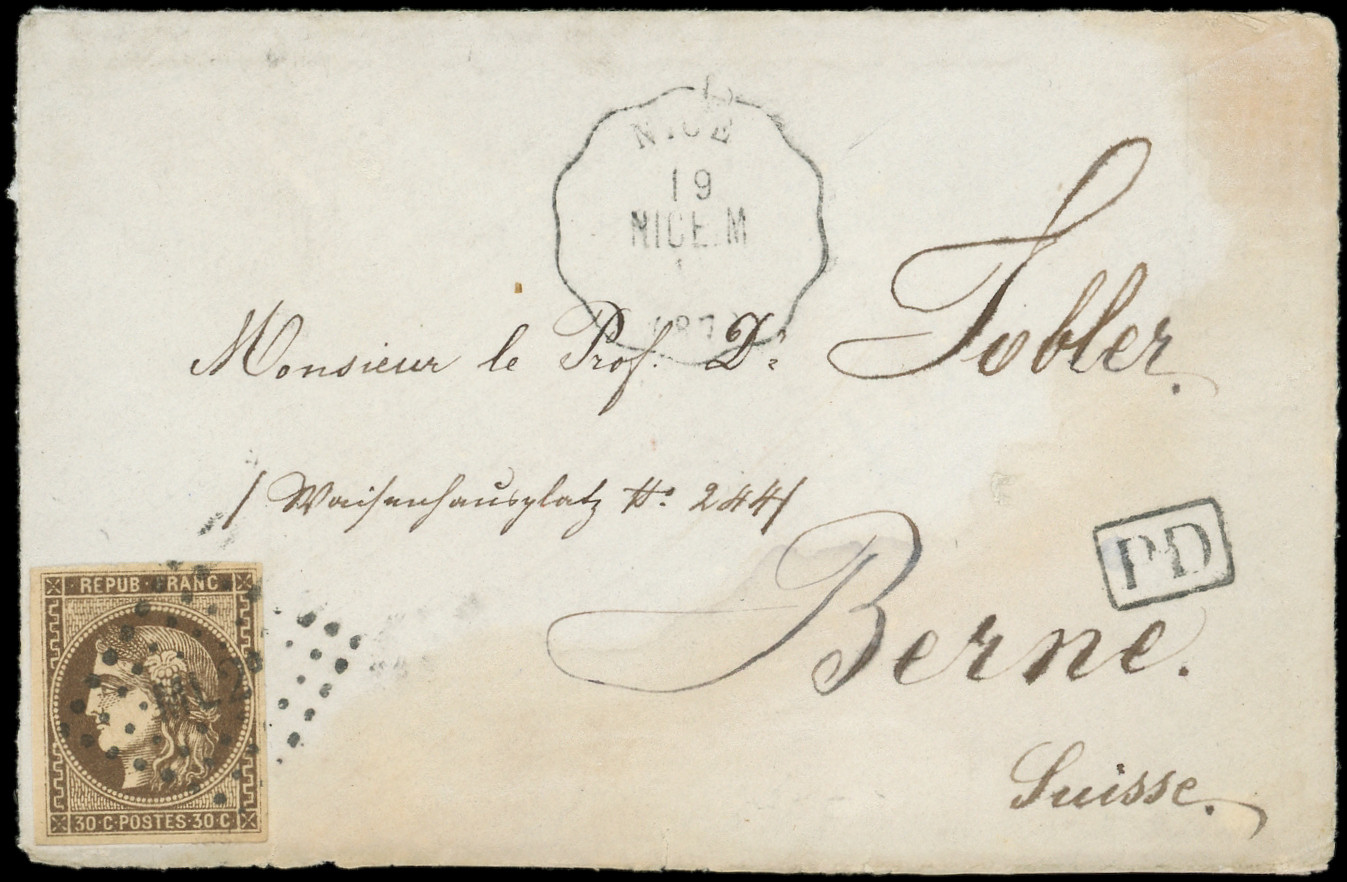 NICE
19
NICE.M
187
Monsieur le Prof. Dr Tobler.
/ Waisenhausplatz No. 244/
PD
Berne.
Suisse.
REPUB·FRANC
ML2
30·C·POSTES·30·C